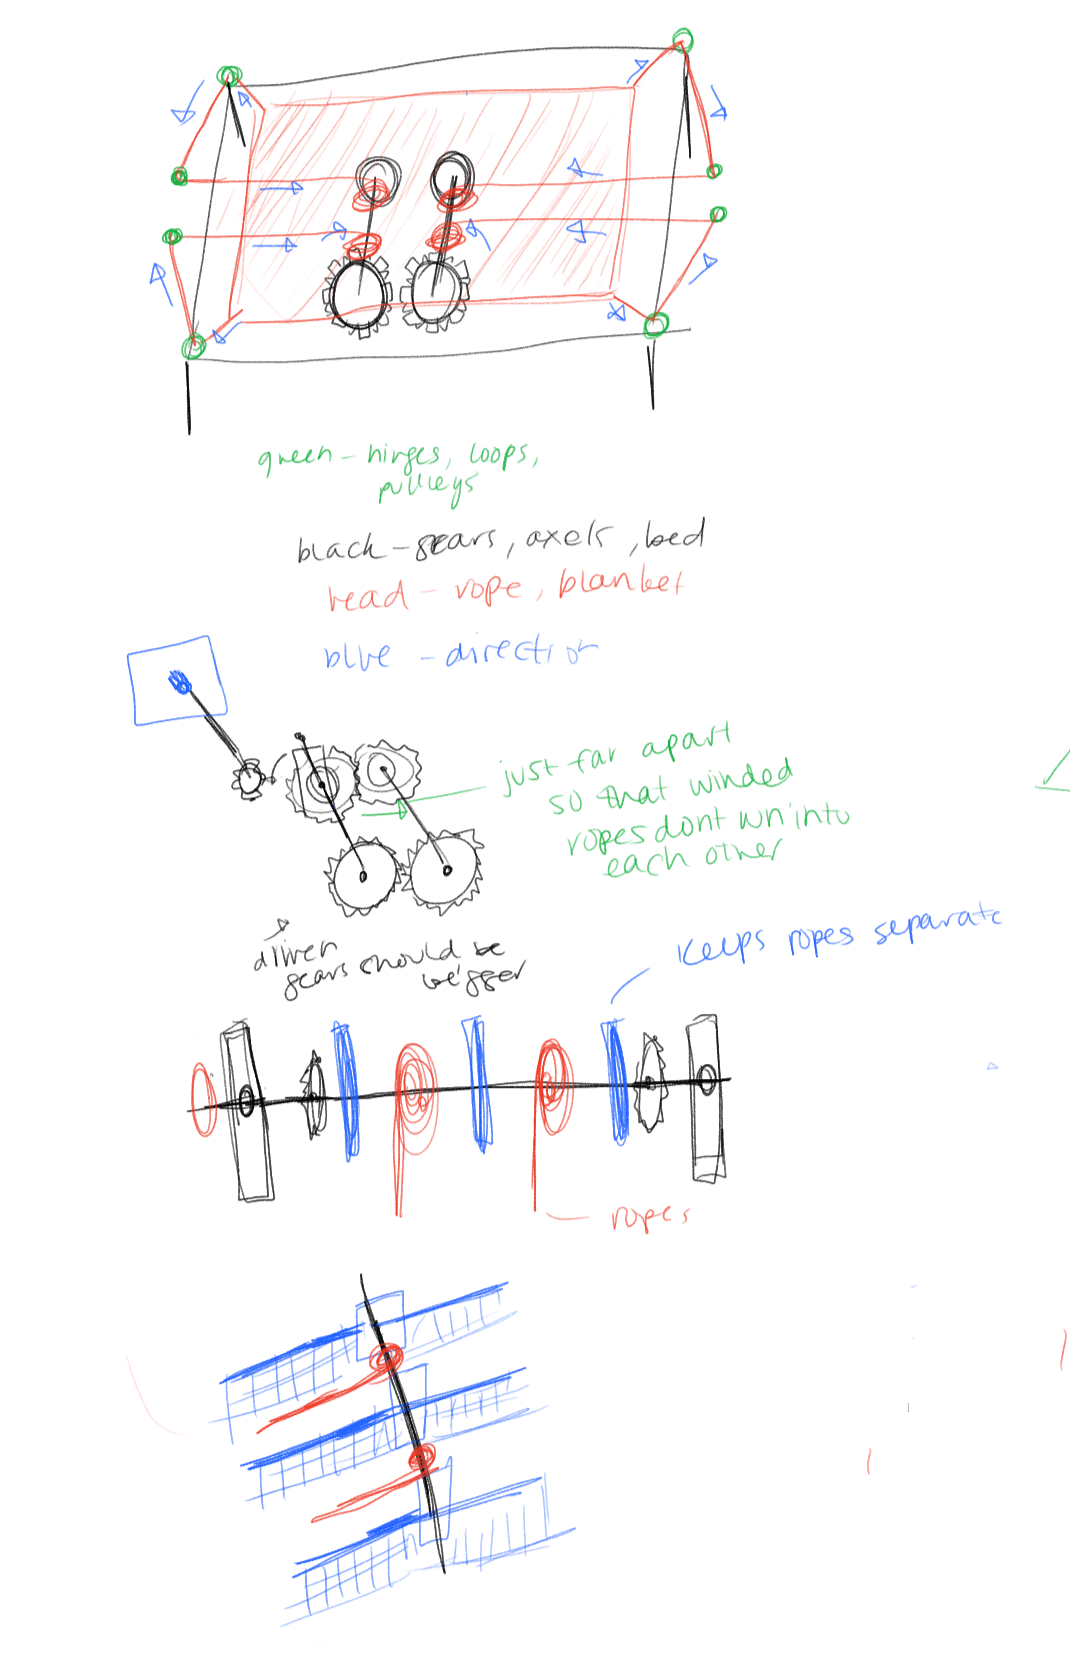 green - hinges, loops,
pulleys
black - gears, axels, bed
read - rope, blanket
blue - direction
just far apart
so that winded
ropes dont wn into
each other
driven
gears should be
bigger
Keeps ropes separate
ropes